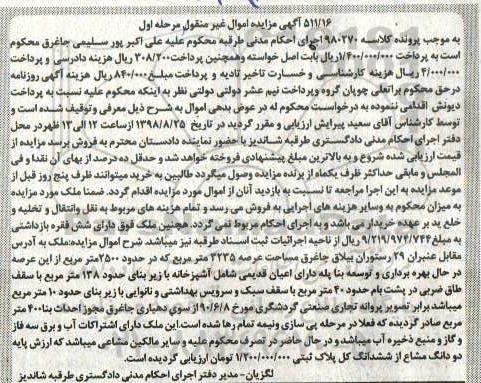 ۵۱۱/۱۶ آگهی مزایده اموال غیر منقول مرحله اول
به موجب پرونده کلاسه ۹۸۰۲۷۰ اجرای احکام مدنی طرقبه محکوم علیه علی اکبر پور سلیمی جاغرق محکوم
است به پرداخت ۱/۴۰۰/۰۰۰/۰۰۰ریال بابت اصل خواسته وهمچنین پرداخت۳۰۸/۲۰۰ ریال هزینه دادرسی و پرداخت
۴/۰۰۰/۰۰۰ ریال هزینه کارشناسی و خسارت تاخیر تادیه و پرداخت مبلغ۸۴۰/۰۰۰ ریال هزینه آگهی روزنامه
درحق محکوم براتعلی چوپان گروه وپرداخت نیم عشر دولتی دولتی نظر به اینکه محکوم علیه نسبت به پرداخت
دیونش اقدامی ننموده به درخواست محکوم له در عوض بدهی اموال به شرح ذیل معرفی وتوقیف شده است و
توسط کارشناس آقای سعید پیرایش ارزیابی و مقرر گردید در تاریخ ۱۳۹۸/۸/۲۵ ازساعت ۱۲ الی۱۳ ظهردر محل
دفتر اجرای احکام مدنی دادگستری طرقبه شاندیز با حضور نماینده دادستان محترم به فروش برسد مزایده از
قیمت ارزیابی شده شروع و به بالاترین مبلغ پیشنهادی فروخته خواهد شد و حداقل ده درصد از بهای آن نقدا و فی
المجلس و مابقی حداکثر ظرف یکماه از برنده مزایده وصول میگردد طالبین به خرید میتوانند ظرف پنج روز قبل از
موعد مزایده به این اجرا مراجعه تا نسبت به بازدید آنان از اموال مورد مزایده اقدام گردد. ضمنا ملک مورد مزایده
به میزان محکوم به وسایر هزینه های اجرایی به فروش می رسد و تمام هزینه های مربوط به نقل وانتقال و تخلیه و
خلع ید بر عهده خریدار می باشد و به اجرای احکام مربوط نمی گردد. همچنین ملک فوق دارای شش فقره بازداشتی
به مبلغ۹/۲۱۹/۹۷۴/۷۴۴ ریال از ناحیه اجرائیات ثبت اسناد طرقبه نیز میباشد. شرح اموال مزایده:ملک به آدرس
مقابل عنبران ۲۹ رستوران ییلاق جاغرق مساحت عرصه ۳۲۳۵ متر مربع که در حدود ۲۵۰۰متر مربع از این عرصه
در حال بهره برداری و توسعه بنا پله دارای اعیان قدیمی شامل آشپزخانه با زیر بنای حدود ۱۳۸ متر مربع با سقف
طاق ضربی در پشت بام حدود ۴۰ متر مربع با سقف سبک و سرویس بهداشتی و نانوایی با زیر بنای حدود ۱۰ متر مربع
میباشد.برابر تصویر پروانه تجاری صنعتی گردشگری مورخ ۹۰/۶/۸از سوی دهیاری جاغرق مجوز احداث بنا ۴۰۰ متر
مربع صادر گردیده که فعلا در مرحله پی سازی ونیمه تمام رها شده است.این ملک دارای اشتراکات آب و برق سه فاز
و گاز و منبع ذخیره آب میباشد و در حال حاضر در تصرف محکوم علیه و سایر مالکین مشاعی میباشد که ارزش پایه
دو دانگ مشاع از ششدانگ کل پلاک ثبتی ۱/۲۰۰/۰۰۰/۰۰۰ تومان ارزیابی گردیده است.
لگزیان- مدیر دفتر اجرای احکام مدنی دادگستری طرقبه شاندیز